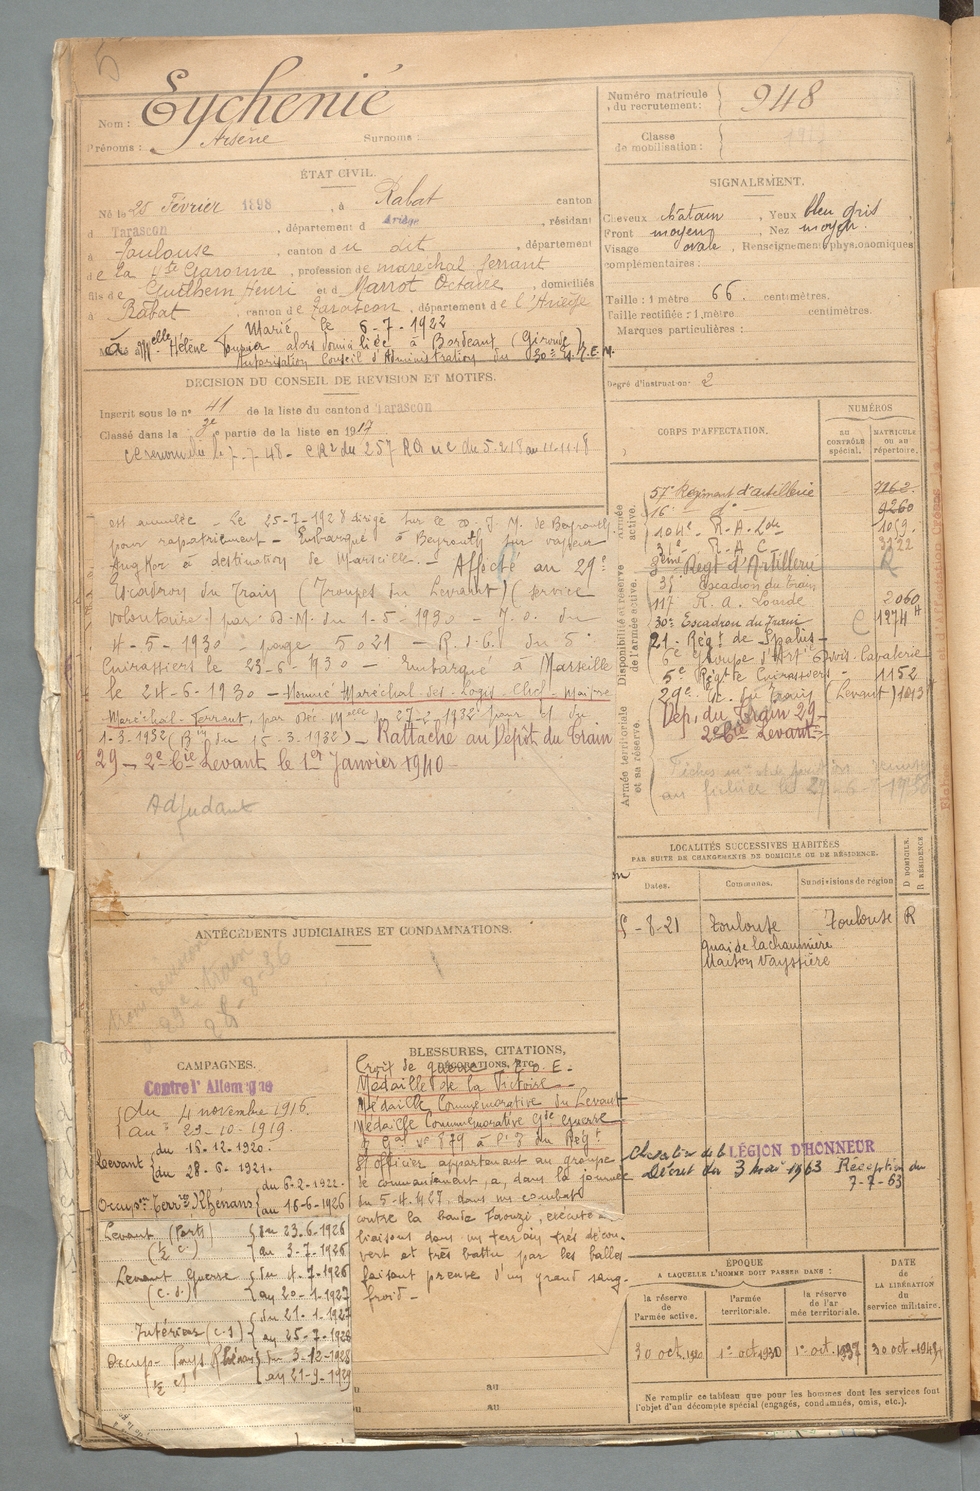 5
Nom : Eychenié
Prénoms : Arsène Surnoms :
Numéro matricule du recrutement : 948
Classe de mobilisation :
ÉTAT CIVIL.
Né le 25 Février 1898, à Rabat canton
d Tarascon, département d Ariège, résidant
à Toulouse, canton d u dit, département
de la Hte Garonne, profession de maréchal ferrant
fils de Guilhem Henri et d Marrot Octavie, domiciliés
à Rabat, canton de Tarascon, département de l'Ariège
Marié le 6-7-1922
à Melle Hélène Tournier alors domiciliée à Bordeaux (Gironde)
Autorisation Conseil d'Administration du 30e Es. T.E.M.
SIGNALEMENT.
Cheveux châtain, Yeux bleu gris,
Front moyen, Nez moyen,
Visage ovale, Renseignements physionomiques
complémentaires :
Taille : 1 mètre 66 centimètres.
Taille rectifiée : 1 mètre centimètres.
Marques particulières :
Degré d'instruction : 2
DÉCISION DU CONSEIL DE RÉVISION ET MOTIFS.
Inscrit sous le n° 41 de la liste du canton d Tarascon
Classé dans la 3e partie de la liste en 1917
le 7-7-48 - CR2 du 257 RA du 5.2.18 au 11.11.18
est annulée - Le 25-7-1928 dirigé sur le D. I. M. de Beyrouth
pour rapatriement - Embarqué à Beyrouth sur vapeur
Angkor à destination de Marseille. - Affecté au 29e
Escadron du Train (Troupes du Levant) (service
volontaire) par D.M. du 1-5-1930 - J.O. du
4-5-1930 - page 5021 - R.d.C. du 5e
Cuirassiers le 23-6-1930 - Embarqué à Marseille
le 24-6-1930 - Nommé Maréchal-des-Logis Chef-Maître
Maréchal-Ferrant, par déc. Melle du 27-2-1932 pour du
1-3-1932 (Bin du 15-3-1932) - Rattaché au Dépôt du Train
29 - 2e Cie Levant le 1er Janvier 1940 -
Adjudant
CORPS D'AFFECTATION.
NUMÉROS
AU CONTRÔLE spécial.
MATRICULE ou au répertoire.
Armée active.
Disponibilité et réserve de l'armée active.
Armée territoriale et sa réserve.
57e Régiment d'artillerie 7162
16e do 9260
104e R.A.Lde 1059
31e R.A.C. 3122
3ème Régt d'Artillerie R
31e Escadron du train
117 R.A. Lourde 2060
30e Escadron du train C 1274 H
21e Régt de Spahis -
6e Groupe d'Artie Divis. Cavalerie
5e Régt de Cuirassiers - 1152
29e Es. du train (Levant) 1013
Dép. du Train 29 -
2e Cie Levant -
Fiches
au fichier le 29-6-1938
LOCALITÉS SUCCESSIVES HABITÉES
PAR SUITE DE CHANGEMENTS DE DOMICILE OU DE RÉSIDENCE.
Dates. Communes. Subdivisions de région. D DOMICILE. R RÉSIDENCE
5-8-21 Toulouse Toulouse R
quai de la chaumière
Maison Vayssière
ANTÉCÉDENTS JUDICIAIRES ET CONDAMNATIONS.
29e train
28-8-36
CAMPAGNES.
Contre l'Allemagne
du 4 novembre 1916.
au 29-10-1919.
Levant du 16-12-1920.
du 28-6-1921.
Occupon Terrres Rhénans du 6-2-1922
au 16-6-1926
Levant (Port) du 23.6.1926
(1/2 c.) au 3-7-1926
Levant Guerre du 4-7-1926
(c.d.) au 20-1-1927
Intérieur (c.s.) du 21-1-1927
au 25-7-1928
Occup- Pays Rhénans du 3-12-1928
(1/2 c) au 21-9-1929
BLESSURES, CITATIONS,
DÉCORATIONS, ETC.
Croix de guerre T.O.E.
Médaille de la Victoire
Médaille Commémorative du Levant
Médaille Commémorative Gde Guerre
O. Gal N° 879 à l'O du Régt
S/officier appartenant au groupe
de commandement, a, dans la journée
du 5-4-1927, dans un combat
contre la bande Faouzi, exécuté
liaisons dans un terrain très décou-
vert et très battu par les balles
faisant preuve d'un grand sang-
froid -
au
au
Chevalier de la LÉGION D'HONNEUR
Décret du 3 Mai 1963 Réception du
7-7-63
ÉPOQUE
A LAQUELLE L'HOMME DOIT PASSER DANS :
la réserve de l'armée active.
l'armée territoriale.
la réserve de l'armée territoriale.
DATE de LA LIBÉRATION du service militaire.
30 oct. 1920 1er oct 1930 1er oct. 1937 30 oct 194
Ne remplir ce tableau que pour les hommes dont les services font
l'objet d'un décompte spécial (engagés, condamnés, omis, etc.).